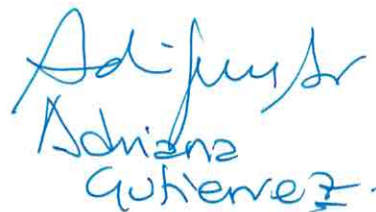 Adriana
Gutierrez.